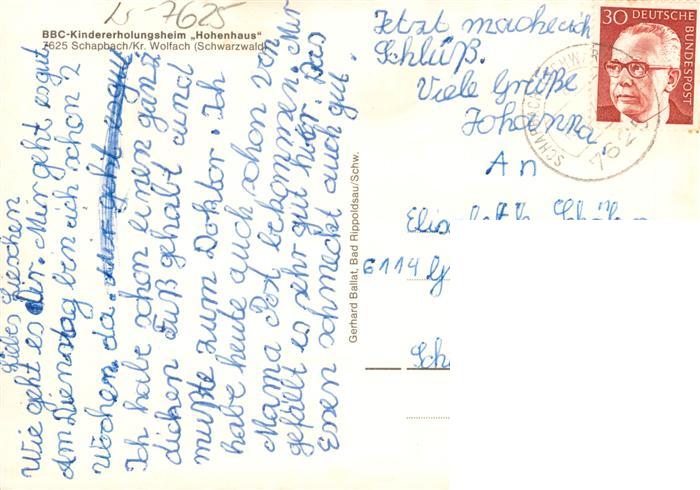 Lr-7625
BBC-Kindererholungsheim „Hohenhaus"
7625 Schapbach/Kr. Wolfach (Schwarzwald)
Liebes Lieschen
Wie geht es dir. Mir geht es gut
Am Dienstag bin ich schon 2
Wochen da. mir geht es gut
Ich habe schon einen ganz
dicken Fuß gehabt und
mußte zum Doktor. Ich
habe heute auch schon von
Mama Post bekommen. Mir
gefällt es sehr gut hier. Das
Essen schmeckt auch gut.
Gerhard Ballat, Bad Rippoldsau/Schw.
Jetzt mache ich
Schluß.
Viele Grüße
Johanna
An
Elisabeth
6114 G
Sch
30 DEUTSCHE BUNDESPOST
7625